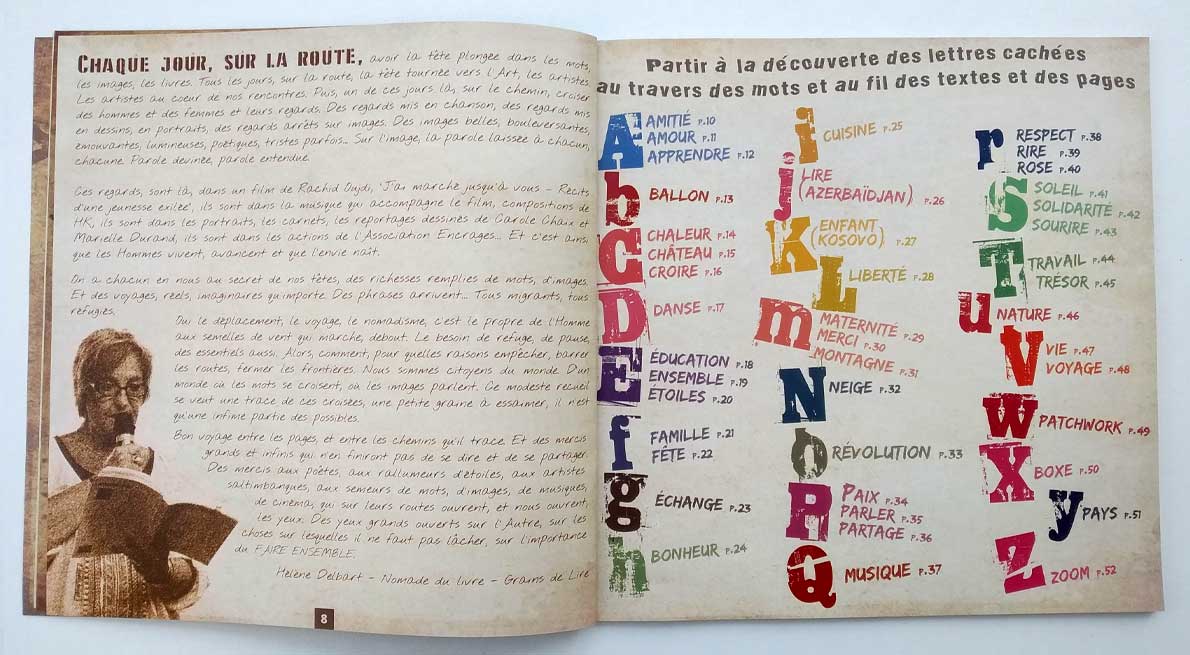 CHAQUE JOUR, SUR LA ROUTE, avoir la tête plongée dans les mots,
les images, les livres. Tous les jours, sur la route, la tête tournée vers l'Art, les artistes.
Les artistes au coeur de nos rencontres. Puis, un de ces jours là, sur le chemin, croiser
des hommes et des femmes et leurs regards. Des regards mis en chanson, des regards mis
en dessins, en portraits, des regards arrêts sur images. Des images belles, bouleversantes,
émouvantes, lumineuses, poétiques, tristes parfois... Sur l'image, la parole laissée à chacun,
chacune. Parole devinée, parole entendue.
Ces regards, sont là, dans un film de Rachid Oujdi, 'J'ai marché jusqu'à vous - Récits
d'une jeunesse exilée', ils sont dans la musique qui accompagne le film, compositions de
HK, ils sont dans les portraits, les carnets, les reportages dessinés de Carole Chaix et
Marielle Durand, ils sont dans les actions de l'Association Encrages... Et c'est ainsi
que les Hommes vivent, avancent et que l'envie naît.
On a chacun en nous au secret de nos têtes, des richesses remplies de mots, d'images.
Et des voyages, réels, imaginaires qu'importe. Des phrases arrivent... Tous migrants, tous
réfugiés.
Oui le déplacement, le voyage, le nomadisme, c'est le propre de l'Homme
aux semelles de vent qui marche, debout. Le besoin de refuge, de pause,
des essentiels aussi. Alors, comment, pour quelles raisons empêcher, barrer
les routes, fermer les frontières. Nous sommes citoyens du monde. D'un
monde où les mots se croisent, où les images parlent. Ce modeste recueil
se veut une trace de ces croisées, une petite graine à essaimer, il n'est
qu'une infime partie des possibles.
Bon voyage entre les pages, et entre les chemins qu'il trace. Et des mercis
grands et infinis qui n'en finiront pas de se dire et de se partager.
Des mercis aux poètes, aux rallumeurs d'étoiles, aux artistes
saltimbanques, aux semeurs de mots, d'images, de musiques,
de cinéma, qui sur leurs routes ouvrent, et nous ouvrent,
les yeux. Des yeux grands ouverts sur l'Autre, sur les
choses sur lesquelles il ne faut pas lâcher, sur l'importance
du FAIRE ENSEMBLE.
Hélène Delbart - Nomade du livre - Grains de Lire
8
Partir à la découverte des lettres cachées
au travers des mots et au fil des textes et des pages
A
AMITIÉ P.10
AMOUR P.11
APPRENDRE P.12
b
BALLON P.13
C
CHALEUR P.14
CHÂTEAU P.15
CROIRE P.16
D
DANSE P.17
E
ÉDUCATION P.18
ENSEMBLE P.19
ÉTOILES P.20
f
FAMILLE P.21
FÊTE P.22
g
ÉCHANGE P.23
h
BONHEUR P.24
i
CUISINE P.25
j
LIRE
(AZERBAÏDJAN) P.26
K
(ENFANT
KOSOVO) P.27
L
LIBERTÉ P.28
m
MATERNITÉ P.29
MERCI P.30
MONTAGNE P.31
N
NEIGE P.32
O
RÉVOLUTION P.33
P
PAIX P.34
PARLER P.35
PARTAGE P.36
Q
MUSIQUE P.37
r
RESPECT P.38
RIRE P.39
ROSE P.40
S
SOLEIL P.41
SOLIDARITÉ P.42
SOURIRE P.43
T
TRAVAIL P.44
TRÉSOR P.45
u
NATURE P.46
V
VIE P.47
VOYAGE P.48
W
PATCHWORK P.49
X
BOXE P.50
y
PAYS P.51
Z
ZOOM P.52